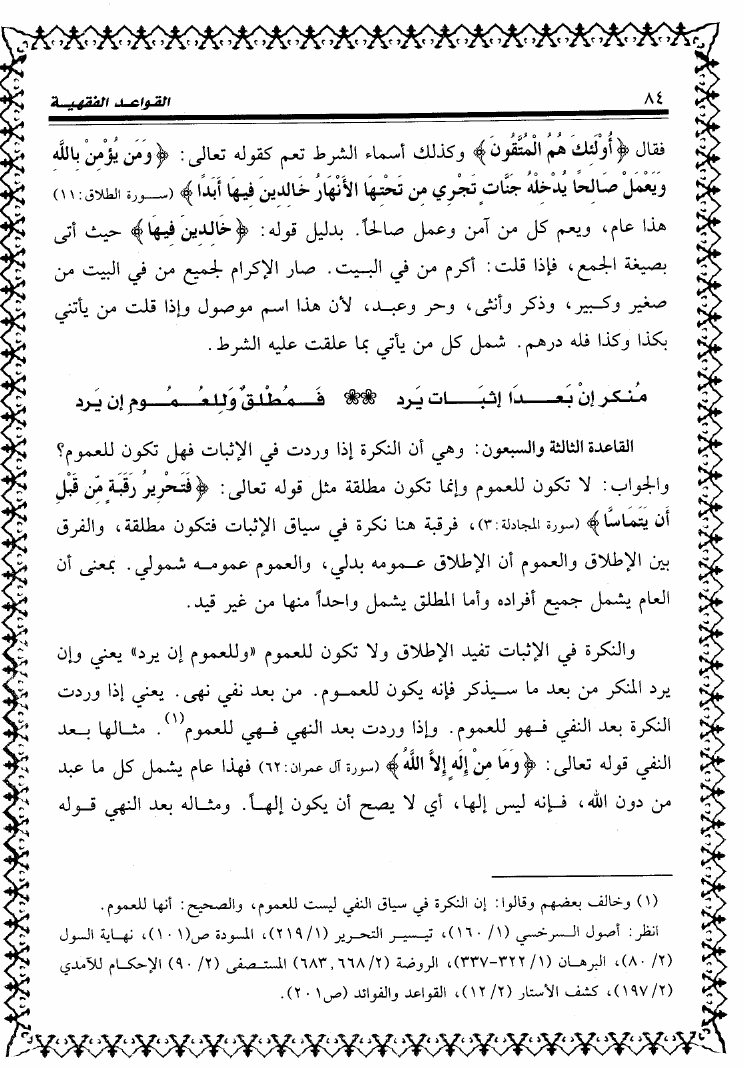 ٨٤ القواعد الفقهية
فقال ﴿أُوْلَئِكَ هُمُ الْمُتَّقُونَ﴾ وكذلك أسماء الشرط تعم كقوله تعالى: ﴿وَمَن يُؤْمِنْ بِاللَّهِ
وَيَعْمَلْ صَالِحًا يُدْخِلْهُ جَنَّاتٍ تَجْرِي مِن تَحْتِهَا الأَنْهَارُ خَالِدِينَ فِيهَا أَبَدًا﴾ (سورة الطلاق: ١١)
هذا عام، ويعم كل من آمن وعمل صالحاً. بدليل قوله: ﴿خَالِدِينَ فِيهَا﴾ حيث أتى
بصيغة الجمع، فإذا قلت: أكرم من في البيت. صار الإكرام لجميع من في البيت من
صغير وكبير، وذكر وأنثى، وحر وعبد، لأن هذا اسم موصول وإذا قلت من يأتني
بكذا وكذا فله درهم. شمل كل من يأتي بما علقت عليه الشرط.
مُنكر إنْ بَعدَا إثبَات يَرد ❀❀ فَمُطْلقٌ وَللعُمُوم إن يَرد
القاعدة الثالثة والسبعون: وهي أن النكرة إذا وردت في الإثبات فهل تكون للعموم؟
والجواب: لا تكون للعموم وإنما تكون مطلقة مثل قوله تعالى: ﴿فَتَحْرِيرُ رَقَبَةٍ مِّن قَبْلِ
أَن يَتَمَاسَّا﴾ (سورة المجادلة: ٣)، فرقبة هنا نكرة في سياق الإثبات فتكون مطلقة، والفرق
بين الإطلاق والعموم أن الإطلاق عمومه بدلي، والعموم عمومه شمولي. بمعنى أن
العام يشمل جميع أفراده وأما المطلق يشمل واحداً منها من غير قيد.
والنكرة في الإثبات تفيد الإطلاق ولا تكون للعموم «وللعموم إن يرد» يعني وإن
يرد المنكر من بعد ما سيذكر فإنه يكون للعموم. من بعد نفي نهى. يعني إذا وردت
النكرة بعد النفي فهو للعموم. وإذا وردت بعد النهي فهي للعموم(١). مثالها بعد
النفي قوله تعالى: ﴿وَمَا مِنْ إِلَهٍ إِلاَّ اللَّهُ﴾ (سورة آل عمران: ٦٢) فهذا عام يشمل كل ما عبد
من دون الله، فإنه ليس إلها، أي لا يصح أن يكون إلهاً. ومثاله بعد النهي قوله
(١) وخالف بعضهم وقالوا: إن النكرة في سياق النفي ليست للعموم، والصحيح: أنها للعموم.
انظر: أصول السرخسي (١/ ١٦٠)، تيسير التحرير (١/ ٢١٩)، المسودة ص(١٠١)، نهاية السول
(٢/ ٨٠)، البرهان (١/ ٣٢٢-٣٣٧)، الروضة (٢/ ٦٦٨, ٦٨٣) المستصفى (٢/ ٩٠) الإحكام للآمدي
(٢/ ١٩٧)، كشف الأستار (٢/ ١٢)، القواعد والفوائد (ص٢٠١).